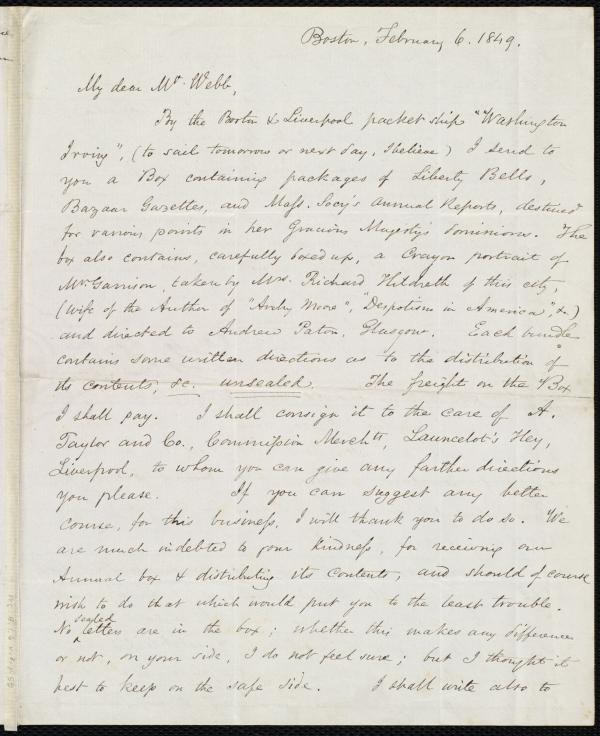 Boston, February 6. 1849.
My dear Mr. Webb,
By the Boston & Liverpool packet ship "Washington
Irving", (to sail tomorrow or next day, I believe) I send to
you a Box containing packages of Liberty Bells,
Bazaar Gazettes, and Mass. Socy's Annual Reports, destined
for various points in her Gracious Majesty's dominions. The
box also contains, carefully boxed up, a Crayon portrait of
Mr. Garrison, taken by Mrs. Richard Hildreth of this city,
(wife of the Author of "Archy Moore", "Despotism in America", &c.)
and directed to Andrew Paton, Glasgow. Each bundle
contains some written directions as to the distribution of
its contents, &c. unsealed. The freight on the Box
I shall pay. I shall consign it to the care of A.
Taylor and Co., Commission Merchts, Launcelot's Hey,
Liverpool, to whom you can give any farther directions
you please. If you can suggest any better
course, for this business, I will thank you to do so. We
are much indebted to your kindness, for receiving our
Annual box & distributing its contents, and should of course
wish to do that which would put you to the least trouble.
No sealed letters are in the box; whether this makes any difference
or not, on your side, I do not feel sure; but I thought it
best to keep on the safe side. I shall write also to